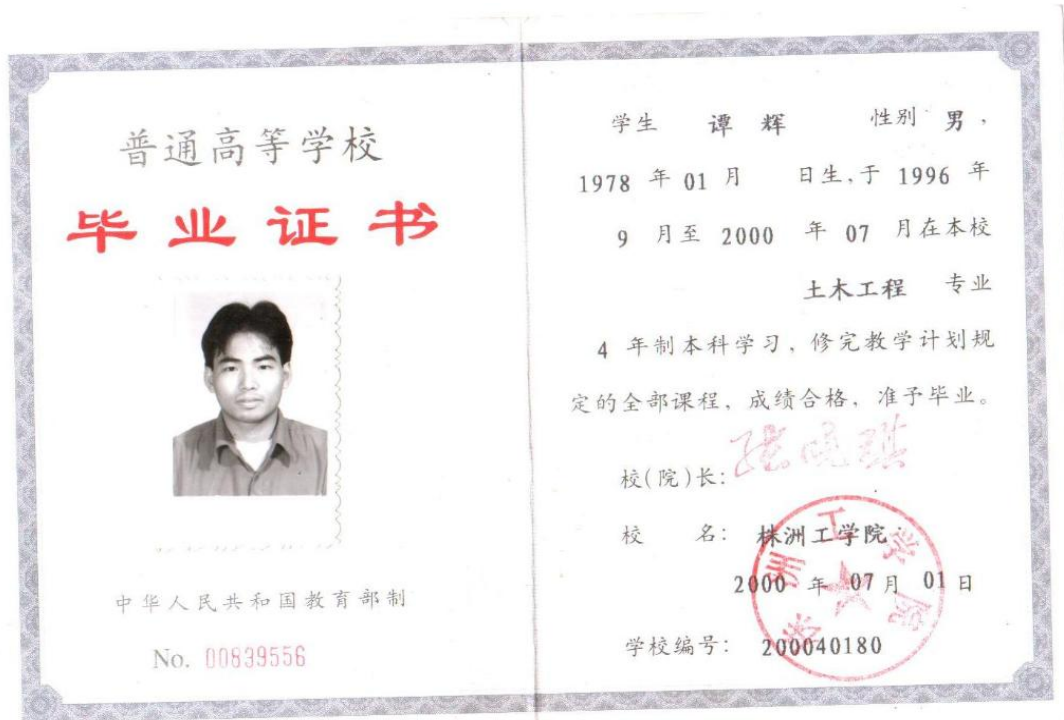 普通高等学校
毕业证书
中华人民共和国教育部制
No. 00839556
学生 谭辉 性别 男，
1978 年 01 月 日生，于 1996 年
9 月至 2000 年 07 月在本校
土木工程 专业
4 年制本科学习、修完教学计划规
定的全部课程，成绩合格，准予毕业。
校(院)长：张晓琪
校 名：株洲工学院
2000 年 07 月 01 日
学校编号：200040180
株洲工学院